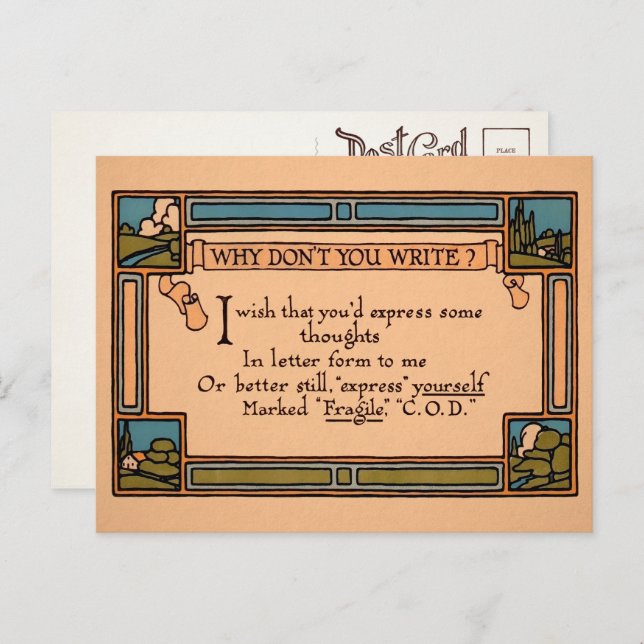 Post Card
PLACE
WHY DON'T YOU WRITE?
I wish that you'd express some
thoughts
In letter form to me
Or better still, "express" yourself
Marked "Fragile," "C.O.D."